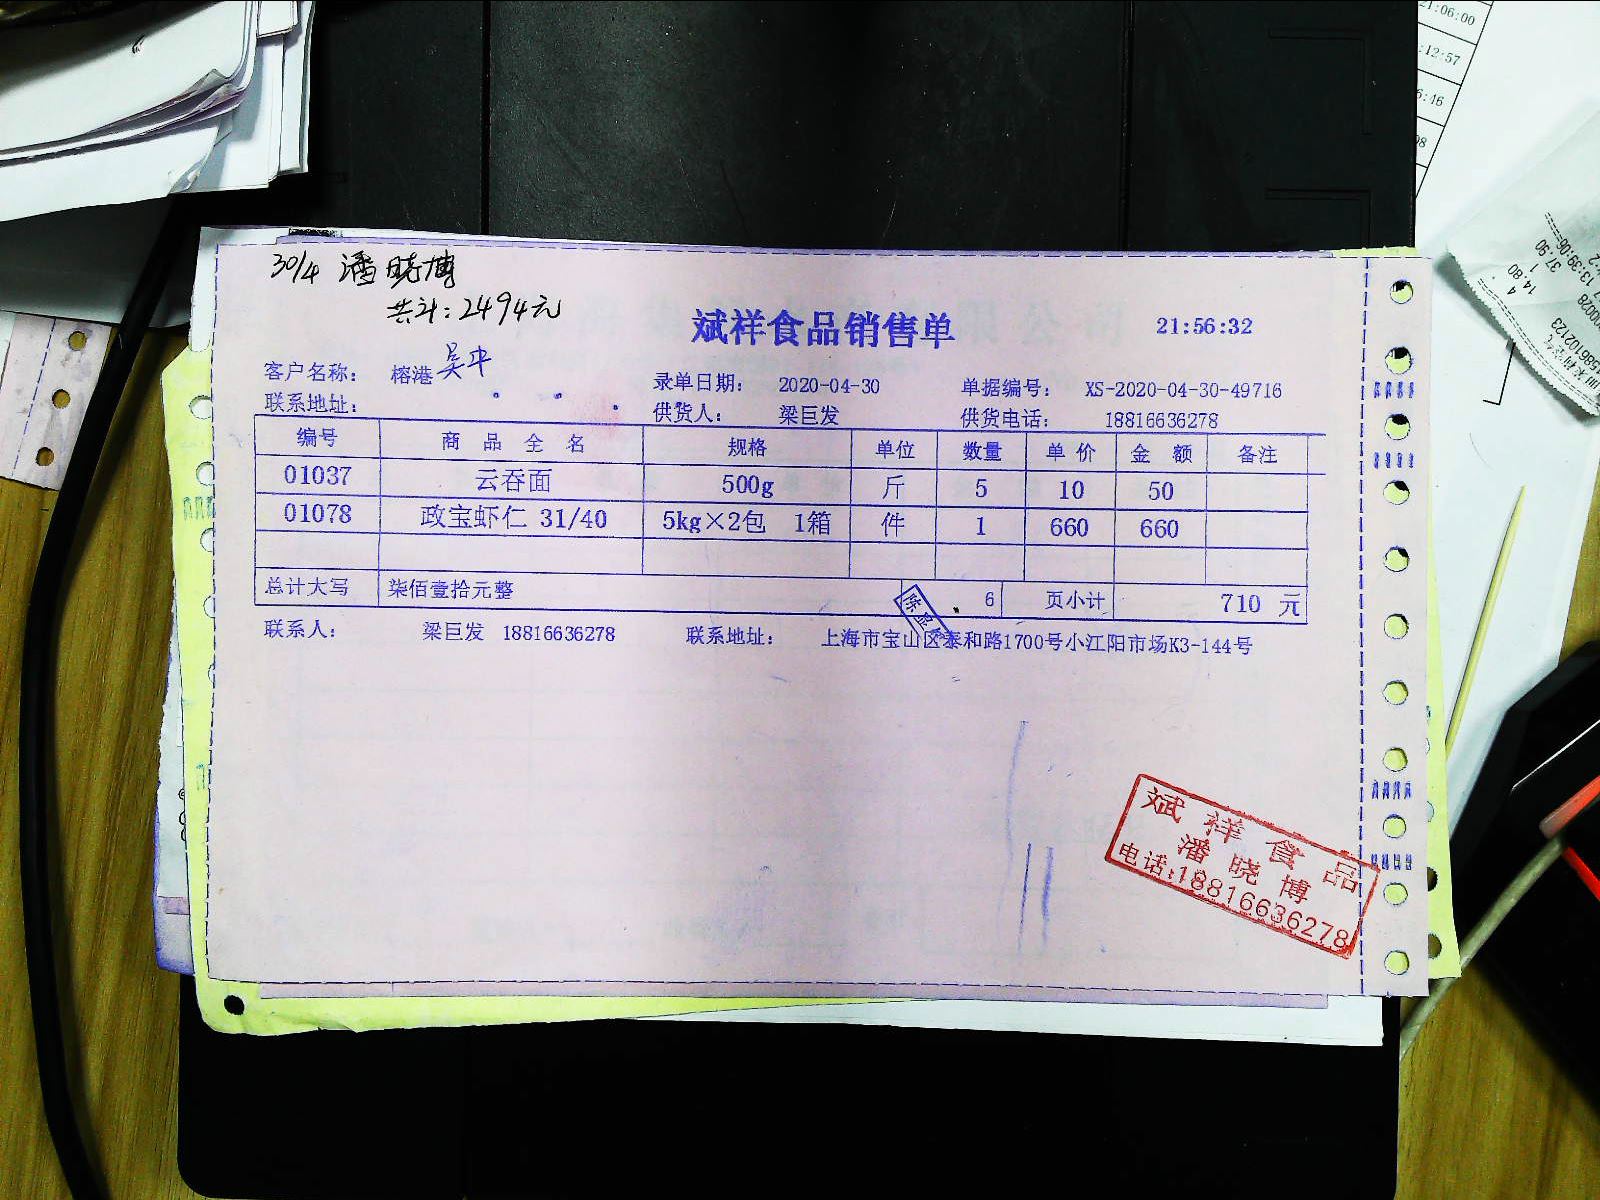 21:06:00
:12:57
30/4 潘晓博
共计：2494元
斌祥食品销售单
21:56:32
客户名称： 榕港 吴中
录单日期： 2020-04-30
单据编号： XS-2020-04-30-49716
联系地址：
供货人： 梁巨发
供货电话： 18816636278
编号 商品全名 规格 单位 数量 单价 金额 备注
01037 云吞面 500g 斤 5 10 50
01078 政宝虾仁 31/40 5kg×2包 1箱 件 1 660 660
总计大写 柒佰壹拾元整 6 页小计 710 元
联系人： 梁巨发 18816636278 联系地址： 上海市宝山区泰和路1700号小江阳市场K3-144号
斌祥食品
潘晓博
电话:18816636278